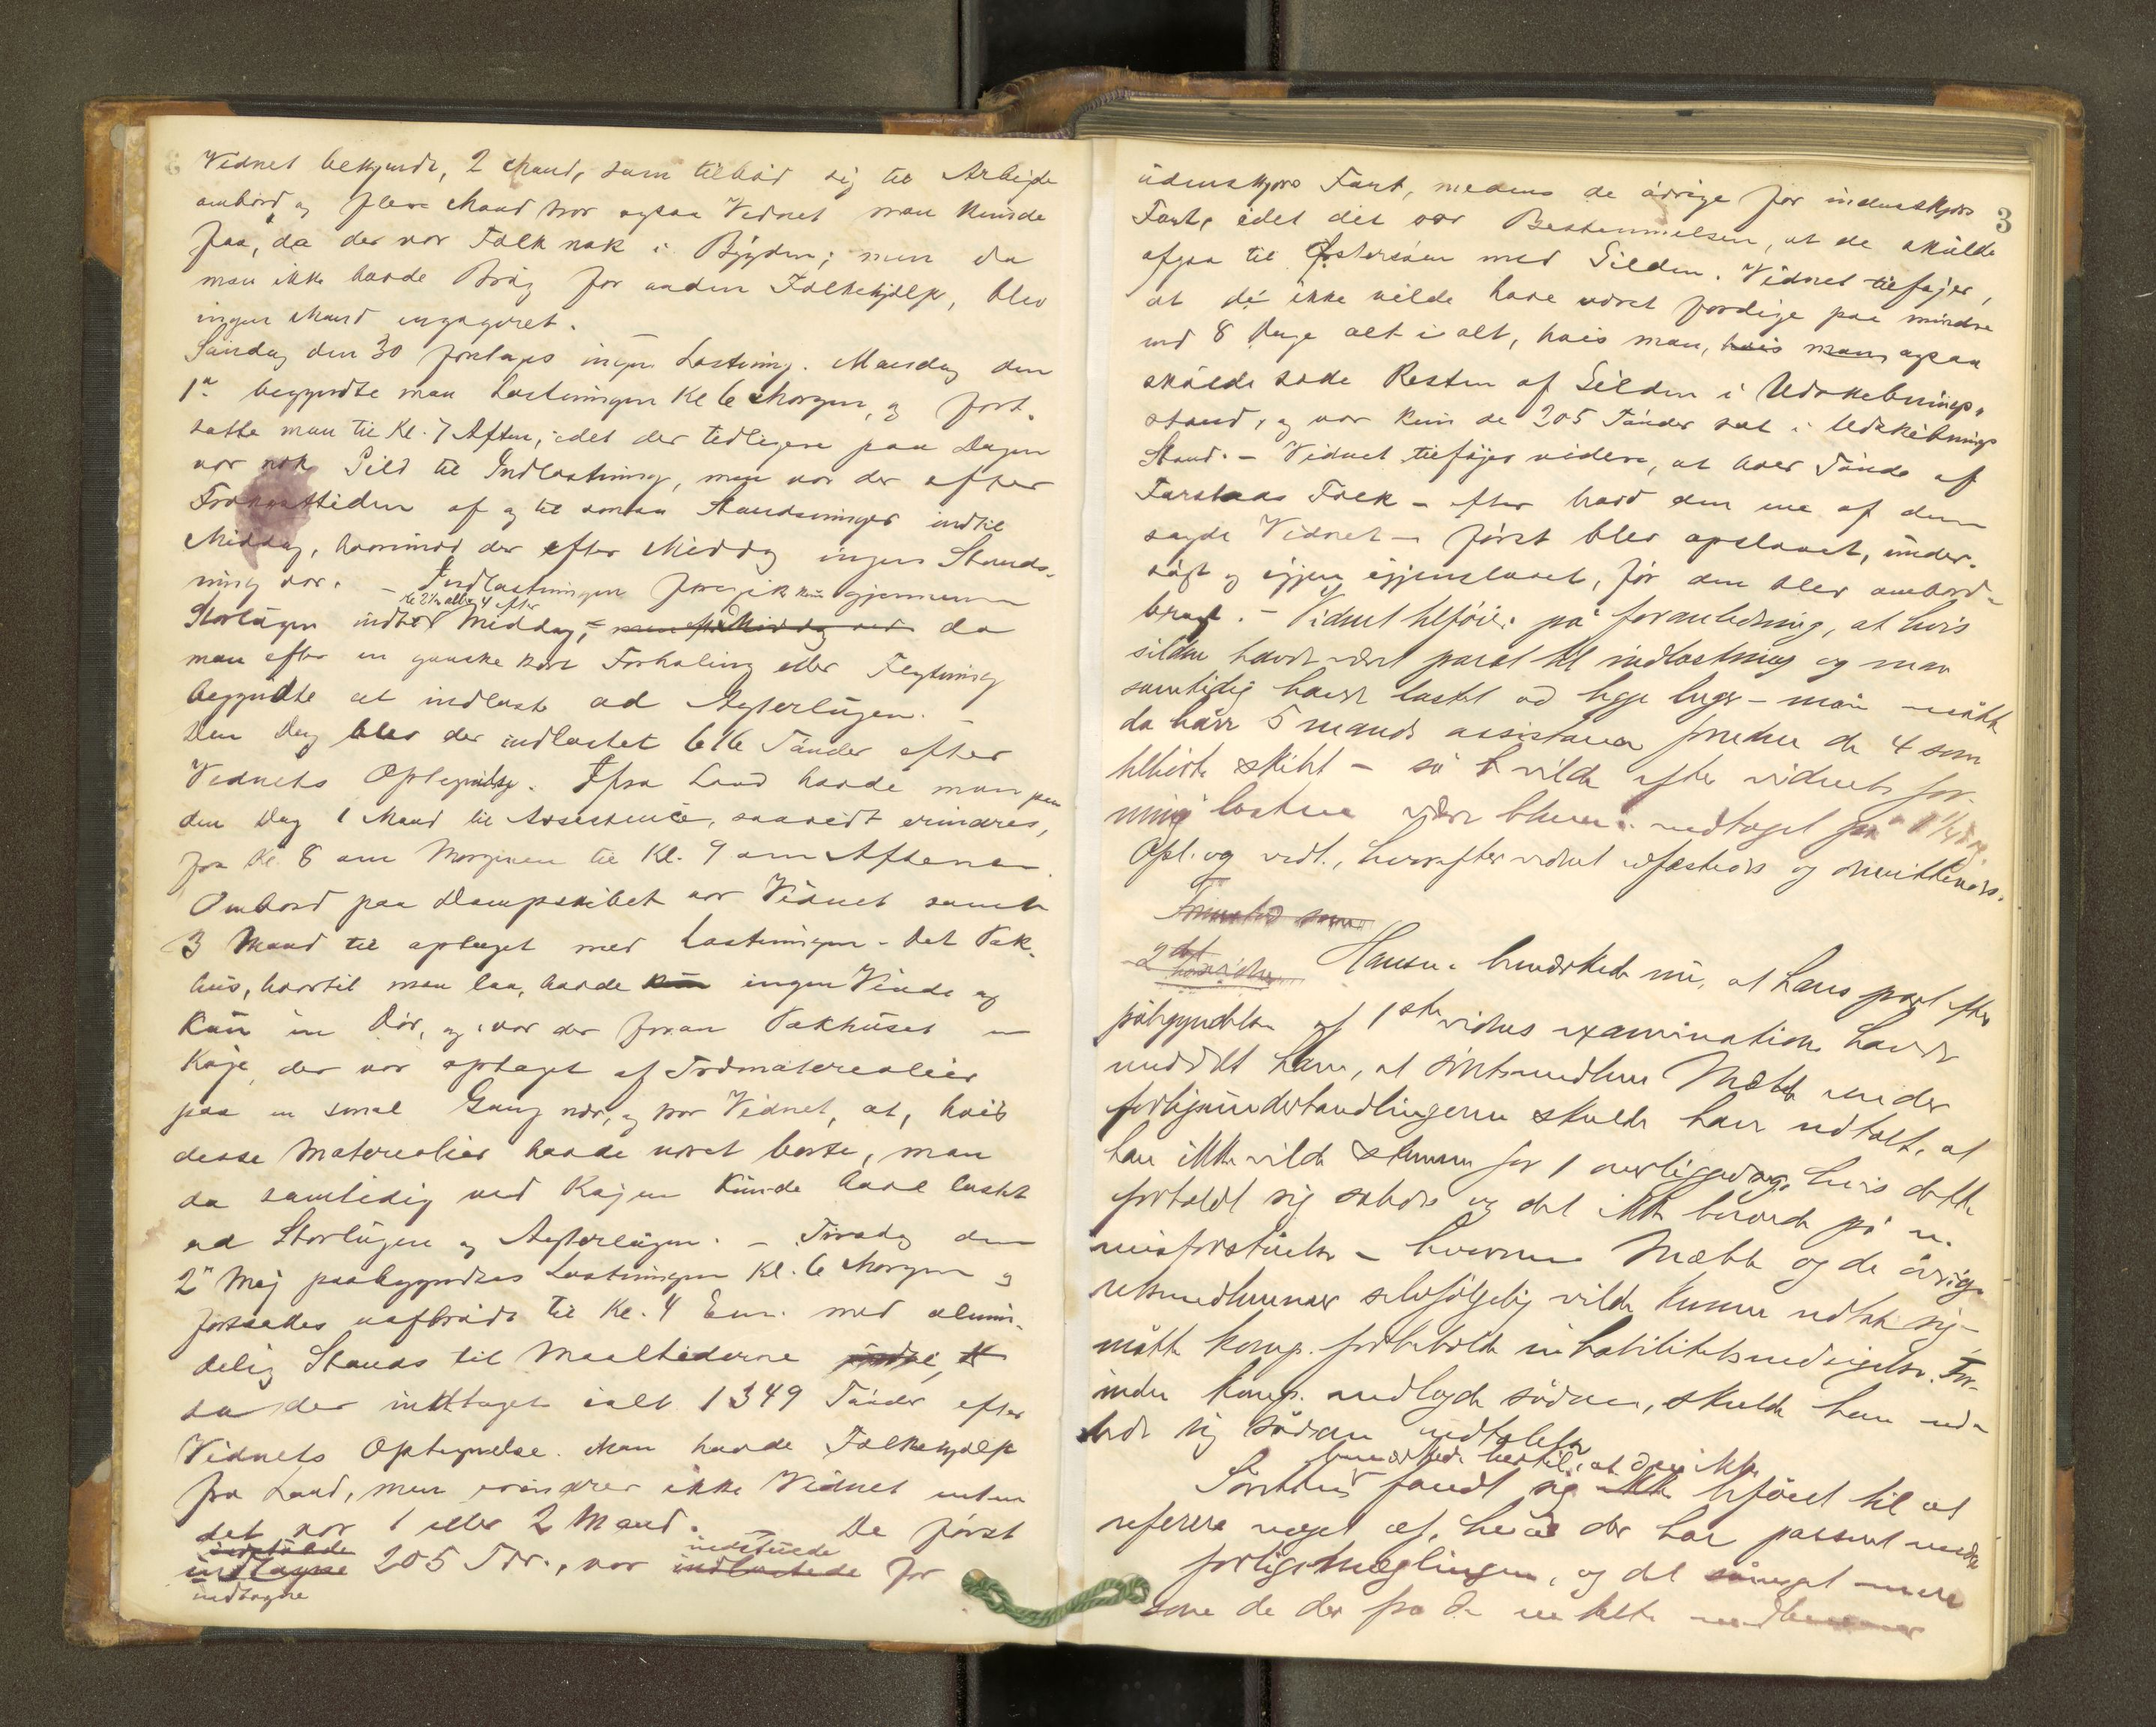 Vidnet bekjendt, 2 Mand, som tilbød sig til Arbejde
ombord og flere Mand tror ogsaa Vidnet man kunde
faa, da der var Folk nok i Byen; men da
man ikke havde Brug for anden Folkehjælp, blev
ingen Mand engageret.
Søndag den 30 foretages ingen Lastning. Mandag den
1ste begyndte man Lastningen Kl 6 Morgen, og fort-
satte man til Kl. 7 Aften, idet der tidligere paa Dagen
var nok Sild til Indlastning, men var der efter
Frokosttiden af og til smaa Standsninger indtil
Middag, hvorimod der efter Middag ingen Stands-
ning var. – Indlastningen foregik kun gjennem
Kl 2½ eller 4 efter
Storlugen indtil Middag, – da
man efter en ganske kort Forhaling eller Flytning
begyndte at indlaste ad Agterlugen. –
Den Dag blev der indlastet 616 Tønder efter
Vidnets Optegnelse. Ifra Land havde man paa
den Dag 1 Mand til Assistence, saavidt erindres,
fra Kl. 8 om Morgenen til Kl. 9 om Aftenen.
Ombord paa Dampskibet var Vidnet samt
3 Mand til optaget med Lastningen. Det Pak-
hus, hvortil man laa, havde kun ingen Vinde og
Kun en Dør, og var der foran Pakhuset en
Kaje, der var optaget af Trematerialier
paa en smal Gang nær, og tror Vidnet, at, hvis
disse Materialier havde været borte, man
da samtidig ved Kajen Kunde have lastet
ad Storlugen og Agterlugen. – Tirsdag den
2n Maj paabegyndtes Lastningen Kl. 6 Morgen og
fortsattes uafbrudt til Kl. 4 Em. med almin-
delig Stands til Maaltiderne
da der indtaget ialt 1349 Tønder efter
Vidnets Optegnelse. Man havde Folkehjælp
fra Land, men erindrer ikke Vidnet enten
det var 1 eller 2 Mand. – De først
nedstuede
indtagne 205 Tdr., var indlastede for
indtagne
3
udenskjærs Fart, medens de øvrige for indenskjærs
Fart, idet det var Bestemmelsen, at de skulde
afgaa til Østersøen med Silden. Vidnet tilføjer,
at de ikke vilde have været færdige paa mindre
end 8 Dage alt i alt, hvis man, hvis man, ogsaa
skulde sade Resten af Silden i Udskibnings-
stand, og var kun de 205 Tønder sat i Udskibnings
Stand. – Vidnet tilføjer videre, at hver Tønde af
Folk – efter hvad den ene af dem
sagde Vidnet – først blev opslaaet, under-
søgt og igjen igjenslaaet, før den blev ombord-
bragt. – Vidnet tilføier på foranledning, at hvis
silden havde været parat til indlastning og man
samtidig havde lastet ad begge luger – man måtte
da have 5 mands assistance foruden de 4 som
tilhørte skibet – så vilde efter vidnets for-
mening lasten være bleven indtaget på
Opl. og vedt., hvorefter vidnet edfæstedes og dimitteredes.
2det
Hansen bemærkede nu, at hans part efter
påbegyndelsen af 1ste vidnes examination havde
meddelt ham, at søretsmedlem Mæhle under
forligsunderhandlingerne skulde have udtalt, at
han ikke vilde stemme for 1 overliggedag, hvis dette
forholdt sig således og det ikke beroede på en
misforståelse – hvorom Mæhle og de øvrige
retsmedlemmer selvfølgelig vilde kunne udtale sig –
måtte komp. forbeholde inhabilitetsindsigelse. For-
inden komp. nedlagde sådan, skulde han ud-
bede sig sådan udtalelse
bemærkede hertil, at den ikke
Søretten fandt sig ikke beføiet til at
referere noget af, hvad der har passeret under
forligsmæglingen, og det såmeget mere
som de der fra de enkelte medlemmer